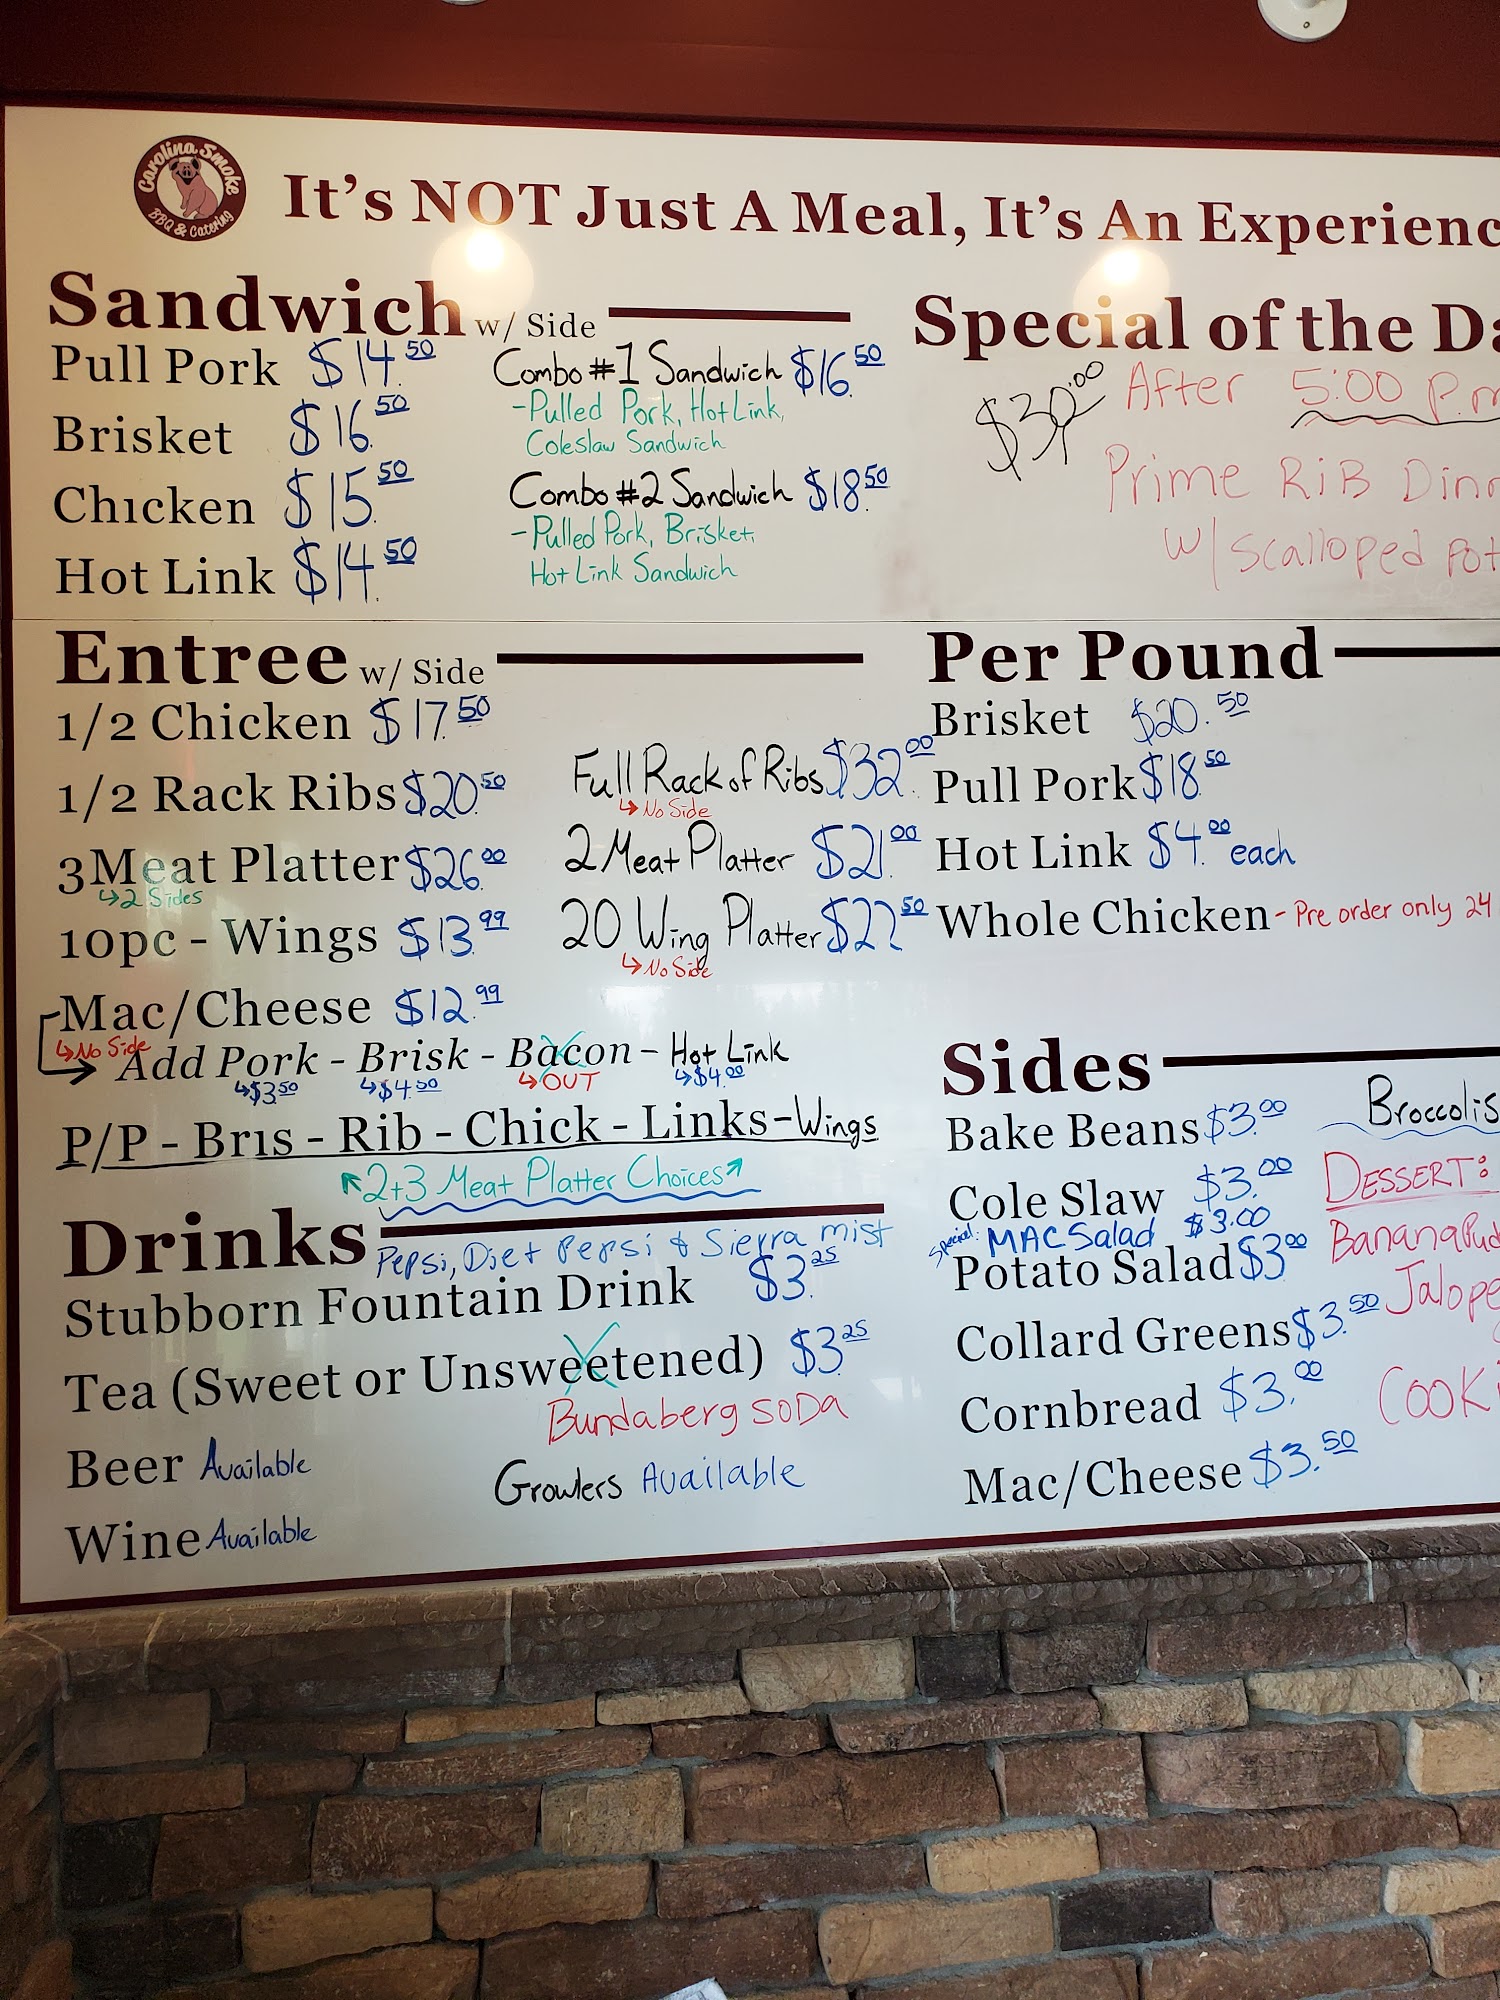 Carolina Smoke
BBQ & Catering
It's NOT Just A Meal, It's An
Sandwich w/ Side
Pull Pork $14.50
Brisket $16.50
Chicken $15.50
Hot Link $14.50
Combo #1 Sandwich $16.50
-Pulled Pork, Hot Link,
Coleslaw Sandwich
Combo #2 Sandwich $18.50
-Pulled Pork, Brisket,
Hot Link Sandwich
Special of the
$30.00
After 5:00
Prime RiB
w/ Scalloped
Entree w/ Side
1/2 Chicken $17.50
1/2 Rack Ribs $20.50
3 Meat Platter $26.00
↳2 Sides
10pc - Wings $13.99
Mac/Cheese $12.99
↳No Side
Add Pork - Brisk - Bacon - Hot Link
↳$3.50 ↳$4.50 ↳OUT ↳$4.00
P/P - Bris - Rib - Chick - Links - Wings
2+3 Meat Platter Choices
Full Rack of Ribs $32.00
↳No Side
2 Meat Platter $21.00
20 Wing Platter $27.50
↳No Side
Per Pound
Brisket $20.50
Pull Pork $18.50
Hot Link $4.00 each
Whole Chicken - Pre order only 24
Drinks
Pepsi, Diet Pepsi & Sierra mist
Stubborn Fountain Drink $3.25
Tea (Sweet or Unsweetened) $3.25
Bundaberg SODA
Beer Available
Growlers Available
Wine Available
Sides
Bake Beans $3.00
Cole Slaw $3.00
Special: MAC Salad $3.00
Potato Salad $3.00
Collard Greens $3.50
Cornbread $3.00
Mac/Cheese $3.50
DESSERT:
Banana